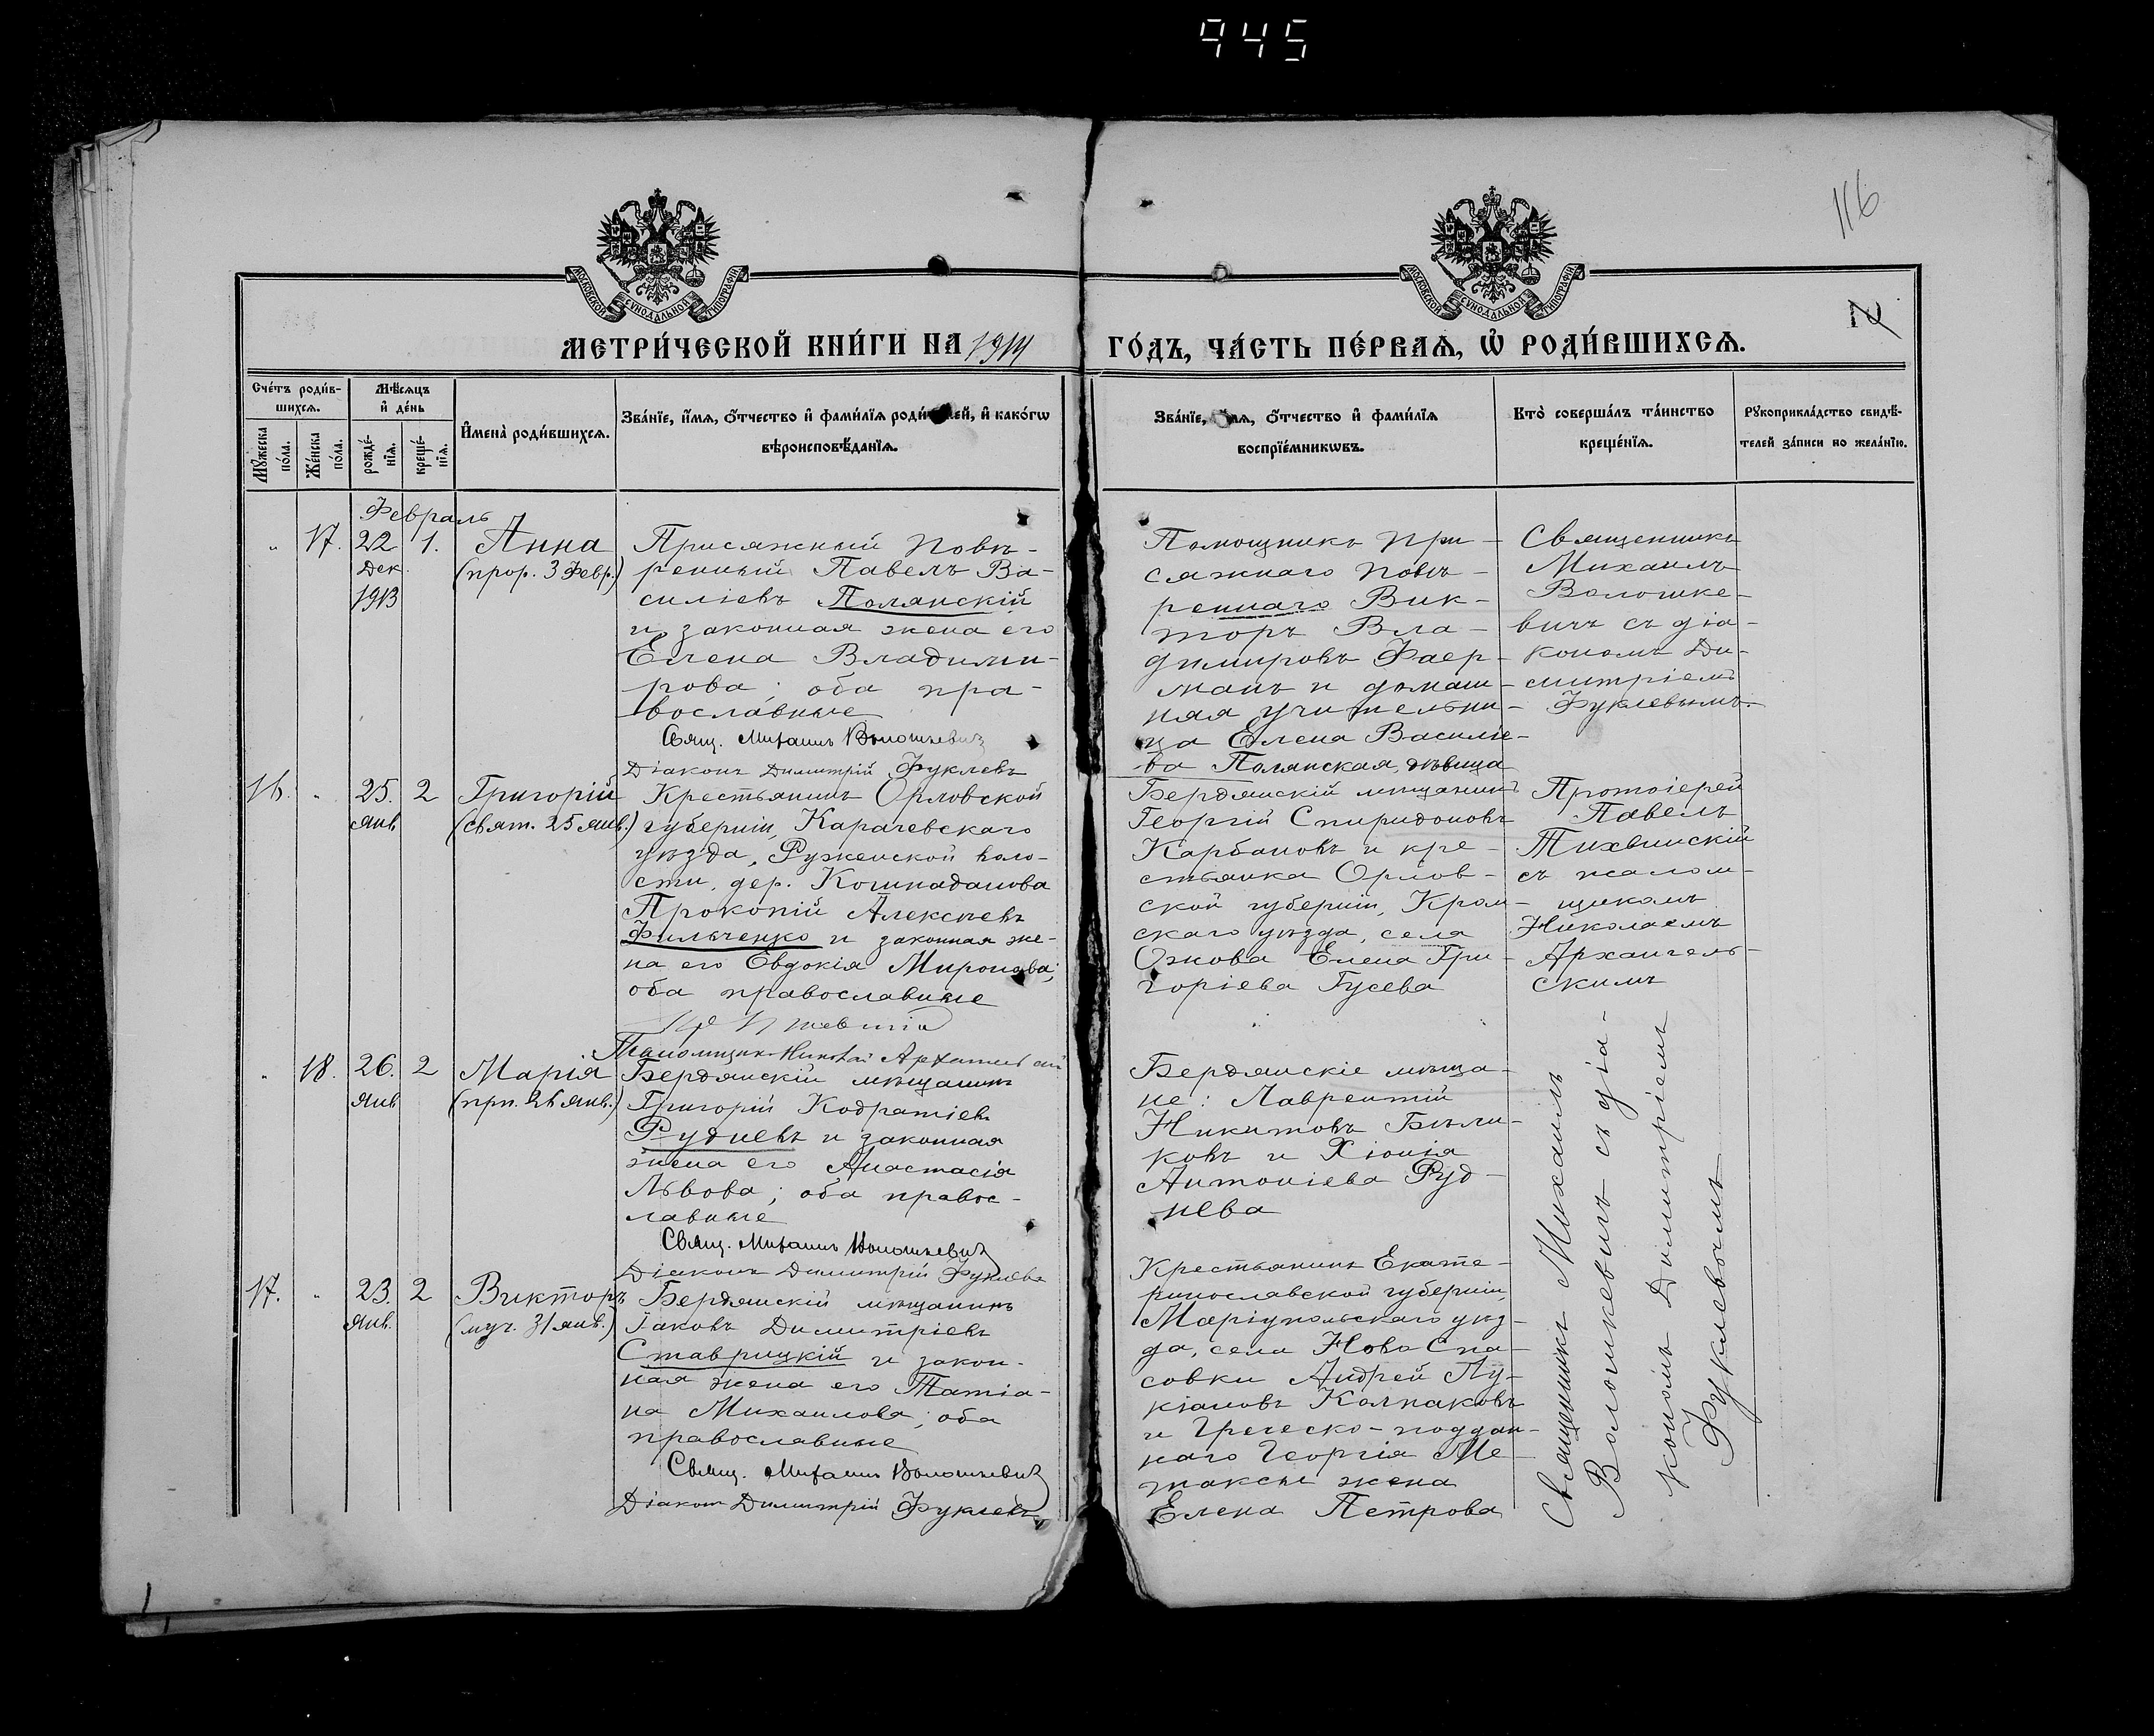 945
116
МОСКОВСКОЙ СУНОДАЛЬНОЙ ТИПОГРАФІИ
МОСКОВСКОЙ СУНОДАЛЬНОЙ ТИПОГРАФІИ
МЕТРИ́ЧЕСКОЙ КНИ́ГИ НА 1914
ГО́ДЪ, ЧА́СТЬ ПЕ́РВАѦ, Ѡ҆ РОДИ́ВШИХСѦ.
Сче́тъ роди́в-
шихсѧ.
Мꙋ́жеска по́ла.
Же́нска по́ла.
Мѣ́сѧцъ
и҆ де́нь
рожде́-
нїѧ.
креще́-
нїѧ.
И҆мена̀ роди́вшихсѧ.
Зва́нїе, и҆́мѧ, ѻ҆́тчество и҆ фами́лїѧ роди́телей, и҆ како́гѡ
вѣроисповѣ́данїѧ.
Зва́нїе, и҆́мѧ, ѻ҆́тчество и҆ фами́лїѧ
воспрїе́мникѡвъ.
Кто̀ соверша́лъ та́инство
креще́нїѧ.
Рꙋкоприкла́дство свидѣ́-
телей за́писи по жела́нїю.
Февраль
" 17. 22 1.
Дек.
1913
Анна
(прор. 3 Февр.)
Присяжный повѣ-
ренный Павелъ Ва-
силіевъ Полянскій
и законная жена его
Елена Владими-
рова; оба пра-
вославные
Свящ. Михаилъ Волошкевичъ
Діаконъ Димитрій Фуклевъ
Помощникъ при-
сяжнаго повѣ-
реннаго Вик-
торъ Вла-
диміровъ Фаер-
манъ и домаш-
няя учительни-
ца Елена Василіе-
ва Полянская, дѣвица
Священникъ
Михаилъ
Волошке-
вичъ съ діа-
кономъ Ди-
митріемъ
Фуклевымъ.
16. " 25. 2
янв.
Григорій
(свят. 25 янв.)
Крестьянинъ Орловской
губерніи, Карачевскаго
уѣзда, Руженской воло-
сти, дер. Кошкаданова
Прокопій Алексѣевъ
Фильченко и законная же-
на его Евдокія Миронова;
оба православные
Псаломщикъ Николай Архангельскій
Бердянскій мѣщанинъ
Георгій Спиридоновъ
Карбановъ и кре-
стьянка Орлов-
ской губерніи, Кром-
скаго уѣзда, села
Ожкова Елена Гри-
горіева Гусева
Протоіерей
Павелъ
Тихвинскій
съ псалом-
щикомъ
Николаемъ
Архангель-
скимъ
" 18. 26. 2
янв.
Марія
(прп. 26 янв.)
Бердянскій мѣщанинъ
Григорій Кодратіевъ
Рудневъ и законная
жена его Анастасія
Львова; оба правос-
лавные
Свящ. Михаилъ Волошкевичъ
Діаконъ Димитрій Фуклевъ
Бердянскіе мѣща-
не: Лаврентій
Никитовъ Бѣли-
ковъ и Хіонія
Антоніева Руд-
нева
17. " 23. 2
янв.
Викторъ
(муч. 31 янв.)
Бердянскій мѣщанинъ
Іаковъ Димитріевъ
Ставрицкій и закон-
ная жена его Татіа-
на Михаилова; оба
православные
Свящ. Михаилъ Волошкевичъ
Діаконъ Димитрій Фуклевъ
Крестьянинъ Екате-
ринославской губерніи,
Маріупольскаго уѣз-
да, села Ново Спа-
совки Андрей Лу-
кіановъ Колпаковъ
и Греческо-поддан-
наго Георгія Ме-
таксы жена
Елена Петрова
Священникъ Михаилъ
Волошкевичъ съ діа-
кономъ Димитріемъ
Фуклевымъ